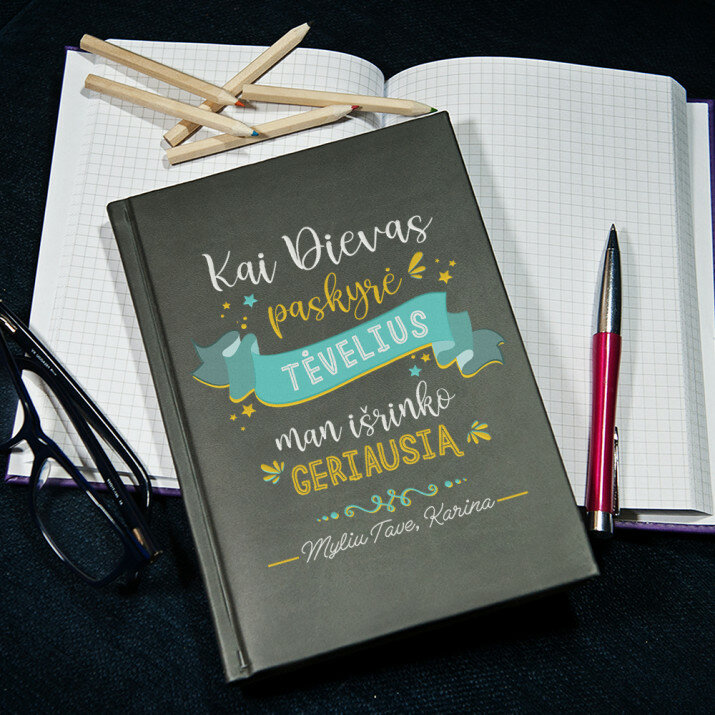 Kai Dievas
paskyrė
TĖVELIUS
man išrinko
GERIAUSIA
Myliu Tave, Karina